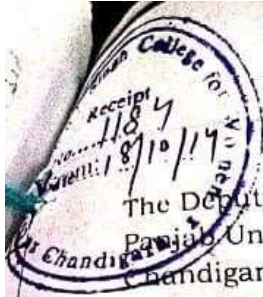 College for Women
Receipt
No.....1184
Dated: 18/10/14
Chandigarh
The Deput
Panjab Un
Chandigar